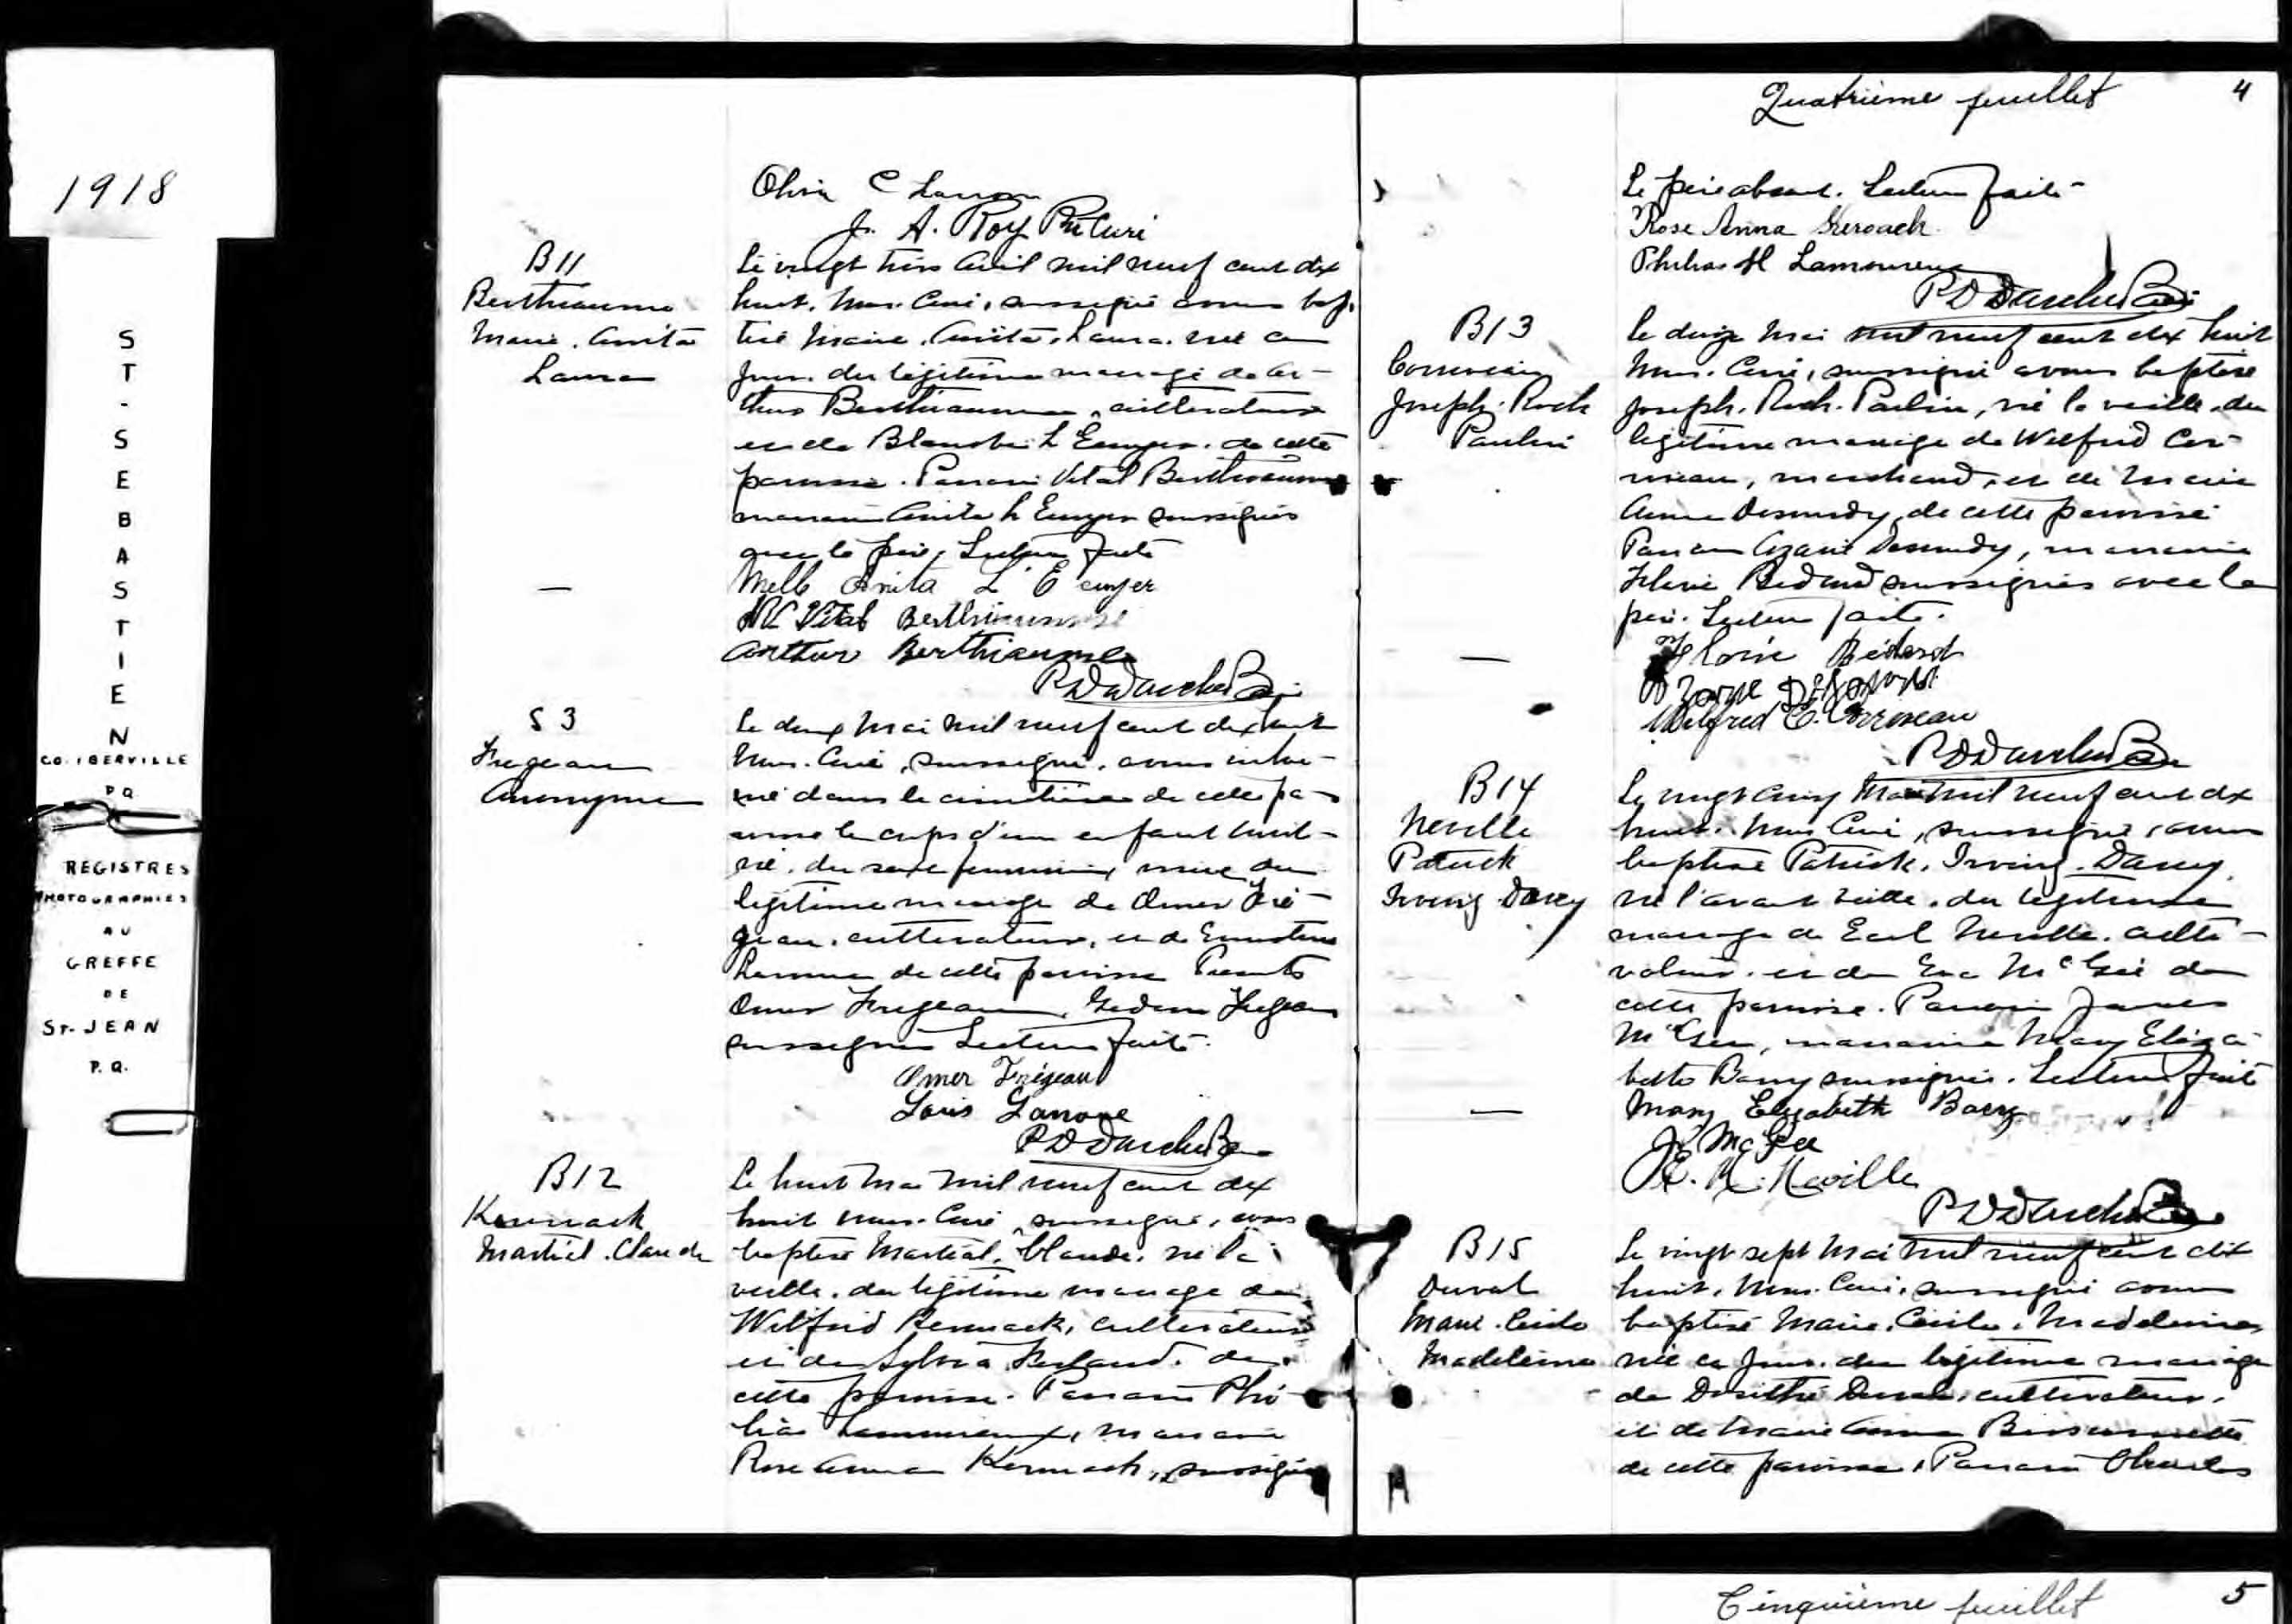 1918
ST-SEBASTIEN
CO. IBERVILLE
P Q
REGISTRES
PHOTOGRAPHIES
AU
GREFFE
DE
ST-JEAN
P.Q.
J. A. Roy Ptre Curé
B11
Berthiaume
Marie. Anita
Laura
Le vingt trois Avril mil neuf cent dix
huit, Nous. Curé, soussigné avons bap-
tisé Marie. Anita. Laura. née ce
jour. du légitime mariage de Ar-
thur Berthiaume, cultivateur
et de Blanche L'Ecuyer. de cette
paroisse. Parrain Vital Berthiaume
marraine Anita L'Ecuyer soussignés
avec le père, Lecture faite
Melle Anita L'Ecuyer
Vital Berthiaume
Arthur Berthiaume
S3
Fregeau
Anonyme
Le deux Mai mil neuf cent dix huit
Nous. Curé, soussigné, avons inhu-
mé dans le cimetière de cette pa-
roisse le corps d'un enfant
né. du sexe féminin, du
légitime mariage de Omer Fré-
geau. cultivateur, et de
de cette paroisse Présents
Omer Fregeau, Fregeau
soussignés Lecture faite.
Omer Frégeau
Louis
B12
Martiel. Claude
Le huit Mai mil neuf cent dix
huit Nous. Curé, soussigné, avons
baptisé Martial. Claude. né la
veille. du légitime mariage de
Wilfrid cultivateur
et de Sylvia de
cette paroisse. Parrain Phi-
lias Lamoureux, marraine
Rose Anna soussignés
Quatrième feuillet 4
Le père absent. Lecture faite-
Rose Anna
Philias H Lamoureux
B13
Joseph. Roch
Paulin
Le douze Mai mil neuf cent dix huit
Nous. Curé, soussigné avons baptisé
Joseph. Roch. Paulin, né la veille. du
légitime mariage de Wilfrid Cor-
riveau, marchand, et de Marie
Anna de cette paroisse
Parrain Azarie marraine
Bedard soussignés avec le
père. Lecture faite.
Bédard
Wilfred C. Corriveau
B14
Neville
Patrick
Irving Darcy
Le vingt cinq Mai mil neuf cent dix
huit. Nous Curé, soussigné, avons
baptisé Patrick. Irving. Darcy.
né l'avant veille. du légitime
mariage de Earl Neville. culti-
vateur. et de Eva McGee de
cette paroisse. Parrain James
McGee, marraine Mary Eliza-
beth Barry soussignés. Lecture faite
Mary Elizabeth Barry
J. McGee
E. Neville
B15
Duval
Marie. Cécile
Madeleine
Le vingt sept Mai mil neuf cent dix
huit. Nous. Curé, soussigné avons
baptisé Marie. Cécile. Madeleine,
née ce jour. du légitime mariage
de Dosithé Duval, cultivateur.
et de Marie Anna
de cette paroisse, Parrain Charles
Cinquième feuillet 5